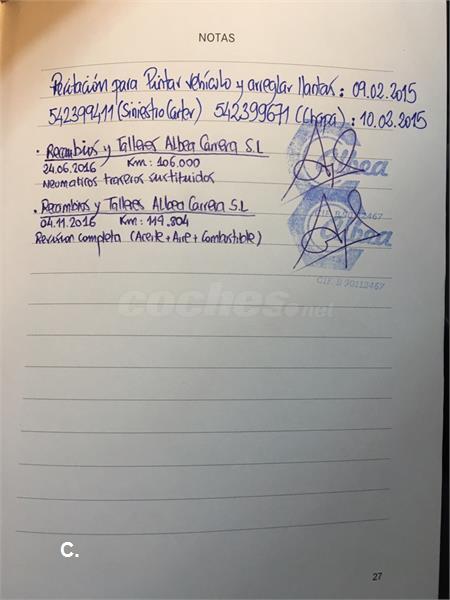 NOTAS
Peritación para Pintar vehículo y arreglar llantas: 09.02.2015
542399411 (Siniestro Carter) 542399671 (Chapa): 10.02.2015
· Recambios y Talleres Albea Carrera S.L
24.06.2016 Km: 106.000
Neumatiros traseros sustituidos
· Recambios y Talleres Albea Carrera S.L
04.11.2016 Km: 119.804
Revision completa (Aceite + Aire + Combustible)
Albea
Albea
CIF. B 90112467
coches.net
C.
27